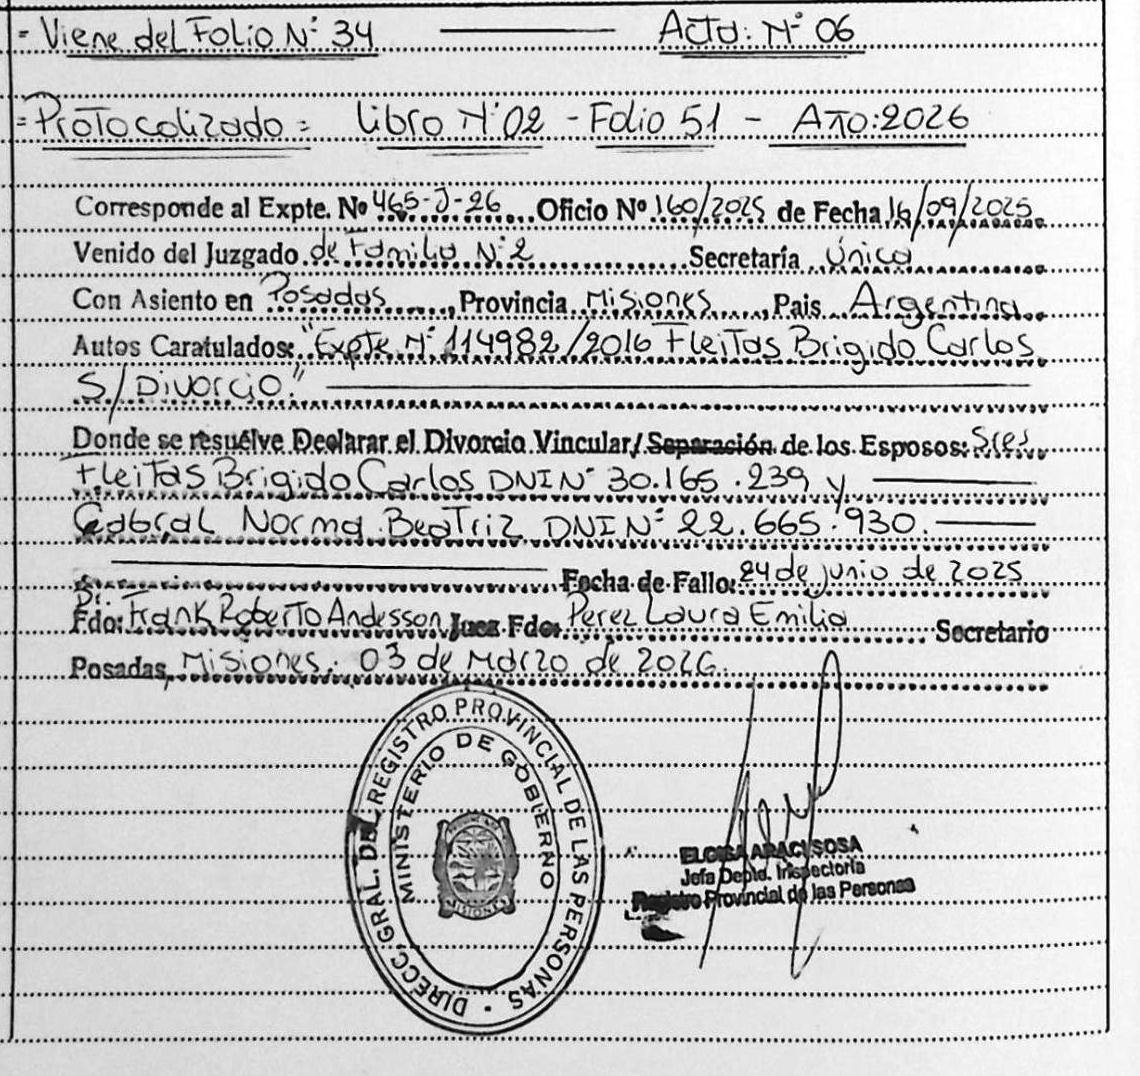 = Viene del Folio N° 34 ——— Acta: N° 06
= Protocolizado = Libro N° 02 - Folio 51 - Año: 2026
Corresponde al Expte. No 465-J-26 Oficio Nº 160/2025 de Fecha 16/09/2025
Venido del Juzgado de Familia N° 2 Secretaría Única
Con Asiento en Posadas, Provincia Misiones, Pais Argentina
Autos Caratulados: "Expte N° 114982/2016 Fleitas Brigido Carlos
S/ Divorcio." ———
Donde se resuelve Declarar el Divorcio Vincular/ Separación de los Esposos: Sres
Fleitas Brigido Carlos DNI N° 30.165.239 y ———
Cabral Norma Beatriz DNI N° 22.665.930. ———
——— Fecha de Fallo: 24 de junio de 2025
Fdo: Dr. Frank Roberto Andesson Juez Fdo: Perez Laura Emilia Secretario
Posadas, Misiones. 03 de Marzo de 2026.
DIRECC. GRAL. DEL REGISTRO PROVINCIAL DE LAS PERSONAS
MINISTERIO DE GOBIERNO
MISIONES
ELOISA ARACI SOSA
Jefa Depto. Inspectoría
Registro Provincial de las Personas